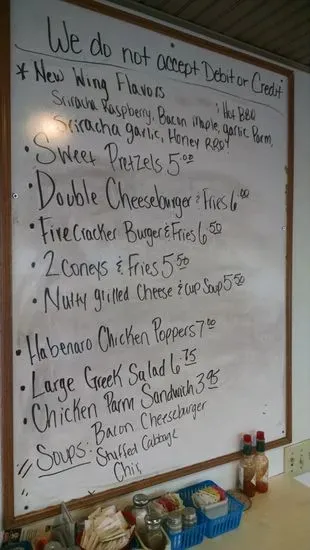 We do not accept Debit or Credit
* New Wing Flavors
Sriracha Raspberry, Bacon Maple, garlic Parm, Hot BBQ
Sriracha garlic, Honey BBQ
• Sweet Pretzels 5.00
• Double Cheeseburger & Fries 6
• Firecracker Burger & Fries 6.50
• 2 Coneys & Fries 5.50
• Nutty grilled Cheese & cup Soup 5.50
• Habenaro Chicken Poppers 7.00
• Large Greek Salad 6.75
• Chicken Parm Sandwich 3.95
Soups: Bacon Cheeseburger
Stuffed Cabbage
Chili